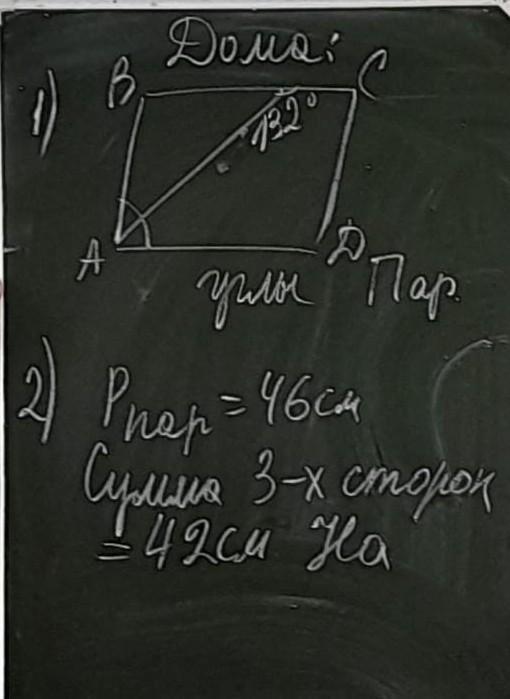 Дома:
1) B C
132°
A D
углы Пар.
2) Pпар = 46 см
Сумма 3-х сторон
= 42 см На